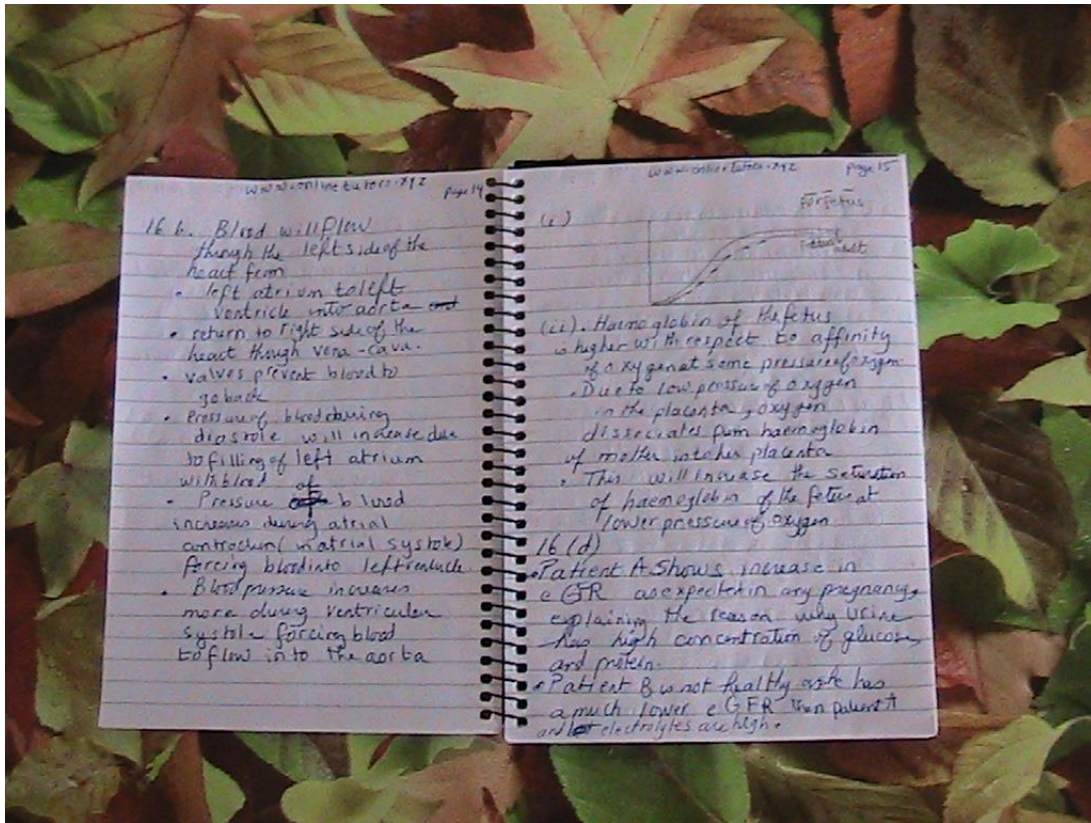 www.onlinetutors.xyz page 14
16 b. Blood will flow
though the left side of the
heart from
• left atrium to left
ventricle into aorta
• return to right side of the
heart though vena-cava.
• valves prevent blood to
go back
• Pressure of blood during
diastole will increase due
to filling of left atrium
with blood
• Pressure of blood
increases during atrial
contraction (in atrial systole)
forcing blood into left ventricle
• Blood pressure increases
more during ventricular
systole forcing blood
to flow in to the aorta
www.onlinetutors.xyz page 15
(i)
For fetus
adult
(ii). Haemoglobin of the fetus
is higher with respect to affinity
of oxygen at same pressure of oxygen
• Due to low pressure of oxygen
in the placenta, oxygen
dissociates from haemoglobin
of mother into her placenta
• This will increase the saturation
of haemoglobin of the fetus at
lower pressure of oxygen
16 (d)
• Patient A Shows increase in
eGFR as expected in any pregnancy,
explaining the reason why urine
has high concentration of glucose,
and protein.
• Patient B is not healthy as he has
a much lower eGFR than patient A
and electrolytes are high.